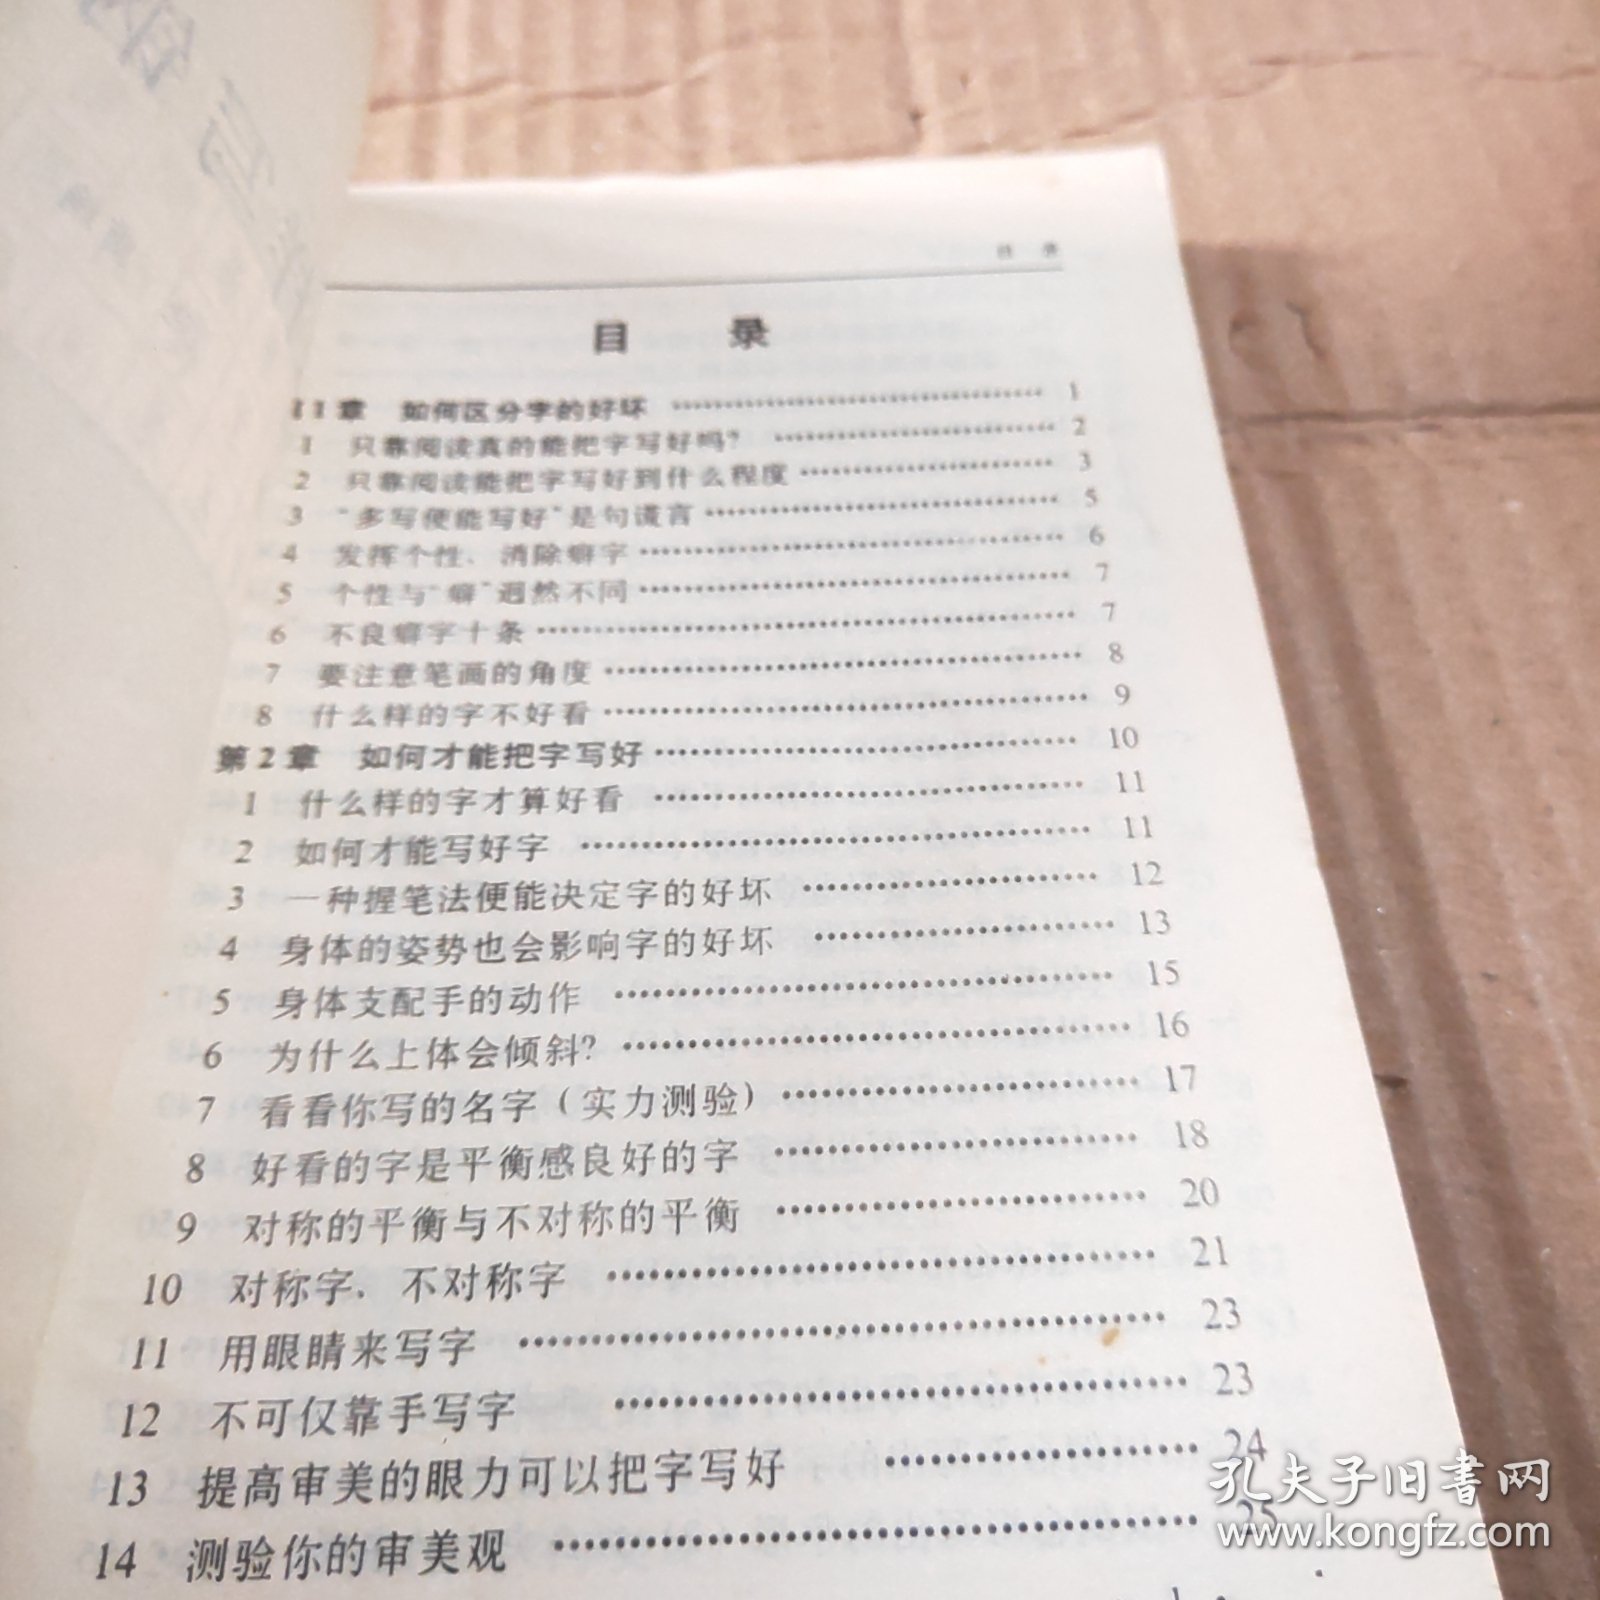 目 录
目 录
11章 如何区分字的好坏 …… 1
1 只靠阅读真的能把字写好吗? …… 2
2 只靠阅读能把字写好到什么程度 …… 3
3 “多写便能写好”是句谎言 …… 5
4 发挥个性、消除癖字 …… 6
5 个性与“癖”迥然不同 …… 7
6 不良癖字十条 …… 7
7 要注意笔画的角度 …… 8
8 什么样的字不好看 …… 9
第2章 如何才能把字写好 …… 10
1 什么样的字才算好看 …… 11
2 如何才能写好字 …… 11
3 一种握笔法便能决定字的好坏 …… 12
4 身体的姿势也会影响字的好坏 …… 13
5 身体支配手的动作 …… 15
6 为什么上体会倾斜? …… 16
7 看看你写的名字(实力测验) …… 17
8 好看的字是平衡感良好的字 …… 18
9 对称的平衡与不对称的平衡 …… 20
10 对称字、不对称字 …… 21
11 用眼睛来写字 …… 23
12 不可仅靠手写字 …… 23
13 提高审美的眼力可以把字写好 …… 24
14 测验你的审美观 …… 25
孔夫子旧书网
www.kongfz.com